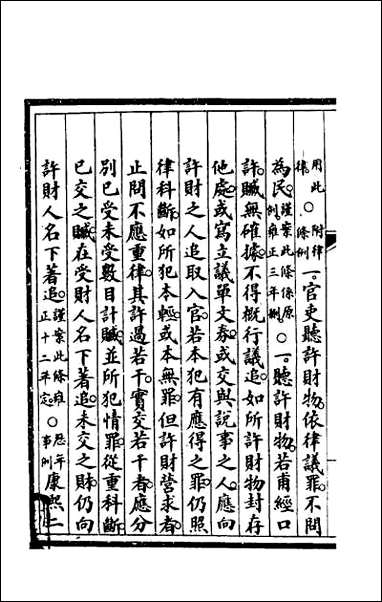 用此律○附律條例一。官吏聽許財物。依律議罪。不問
為民。謹案此條係原例雍正三年刪○一。聽許財物。若甫經口
許。贓無確據。不得概行議追。如所許財物封存
他處。或寫立議單文券。或交與說事之人。應向
許財之人追取入官。若本犯有應得之罪。仍照
律科斷。如所犯本輕。或本無罪。但許財營求者。
止問不應重律。其許過若干。實交若干者。應分
別已受未受數目計贓。並所犯情罪。從重科斷。
已交之贓。在受財人名下著追。未交之財。仍向
許財人名下著追。謹案此條雍正十二年定○歷年事例康熙二